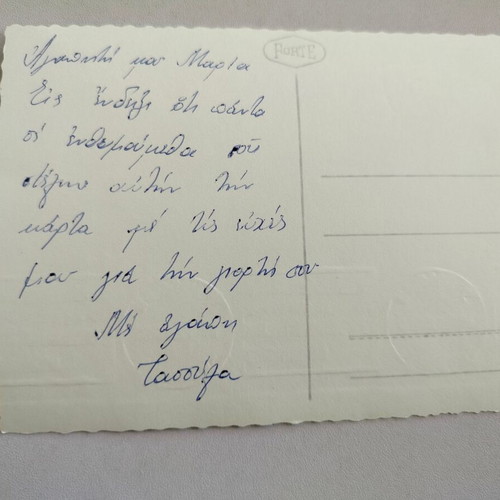 Αγαπητή μου Μαρία
Είς ένδειξι ότι πάντα
σέ ενθυμούμεθα σού
στέλνω αύτήν τήν
κάρτα μέ τίς εύχές
μου γιά τήν γιορτή σου
Μέ αγάπη
Τασούλα